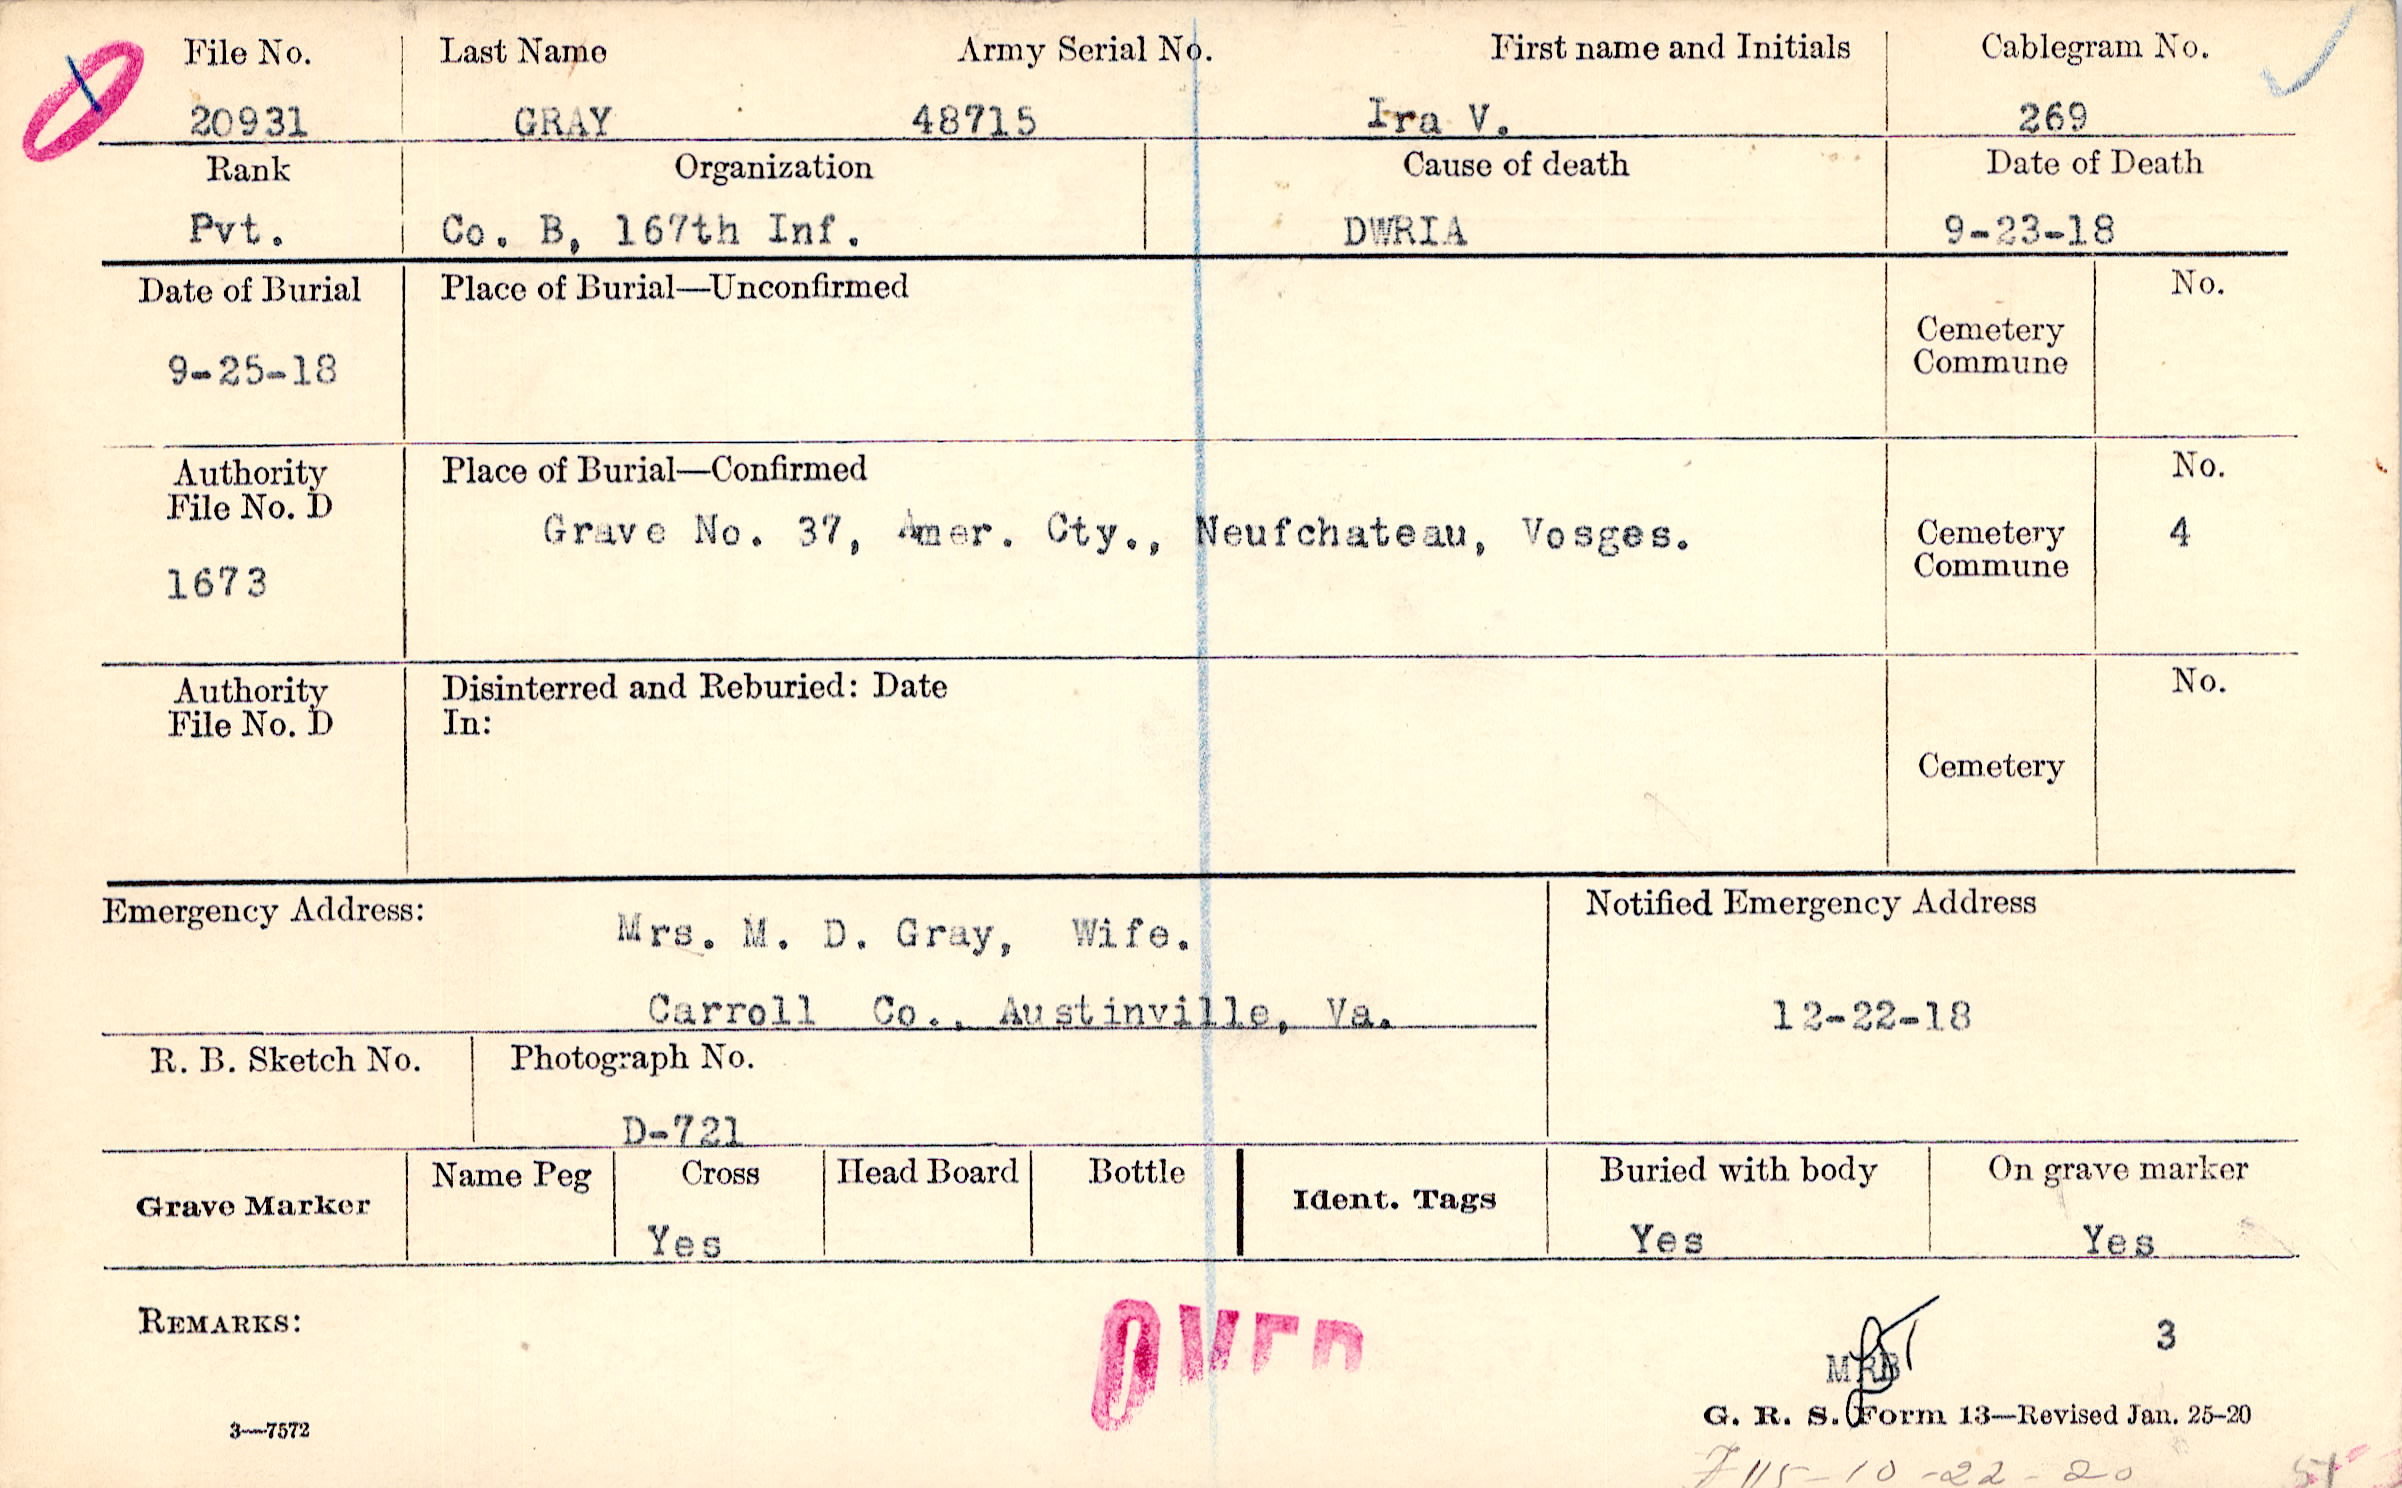 File No. Last Name Army Serial No. First name and Initials Cablegram No.
20931 GRAY 48715 Ira V. 269
Rank Organization Cause of death Date of Death
Pvt. Co. B, 167th Inf. DWRIA 9-23-18
Date of Burial Place of Burial—Unconfirmed No.
Cemetery
Commune
9-25-18
Authority Place of Burial—Confirmed No.
File No. D
Grave No. 37, Amer. Cty., Neufchateau, Vosges. Cemetery 4
Commune
1673
Authority Disinterred and Reburied: Date No.
File No. D In:
Cemetery
Emergency Address: Notified Emergency Address
Mrs. M. D. Gray, Wife.
Carroll Co., Austinville, Va. 12-22-18
R. B. Sketch No. Photograph No.
D-721
Name Peg Cross Head Board Bottle Buried with body On grave marker
Grave Marker Ident. Tags
Yes Yes Yes
REMARKS: OVER 3
MRB
3—7572 G. R. S. Form 13—Revised Jan. 25-20
10-22-20